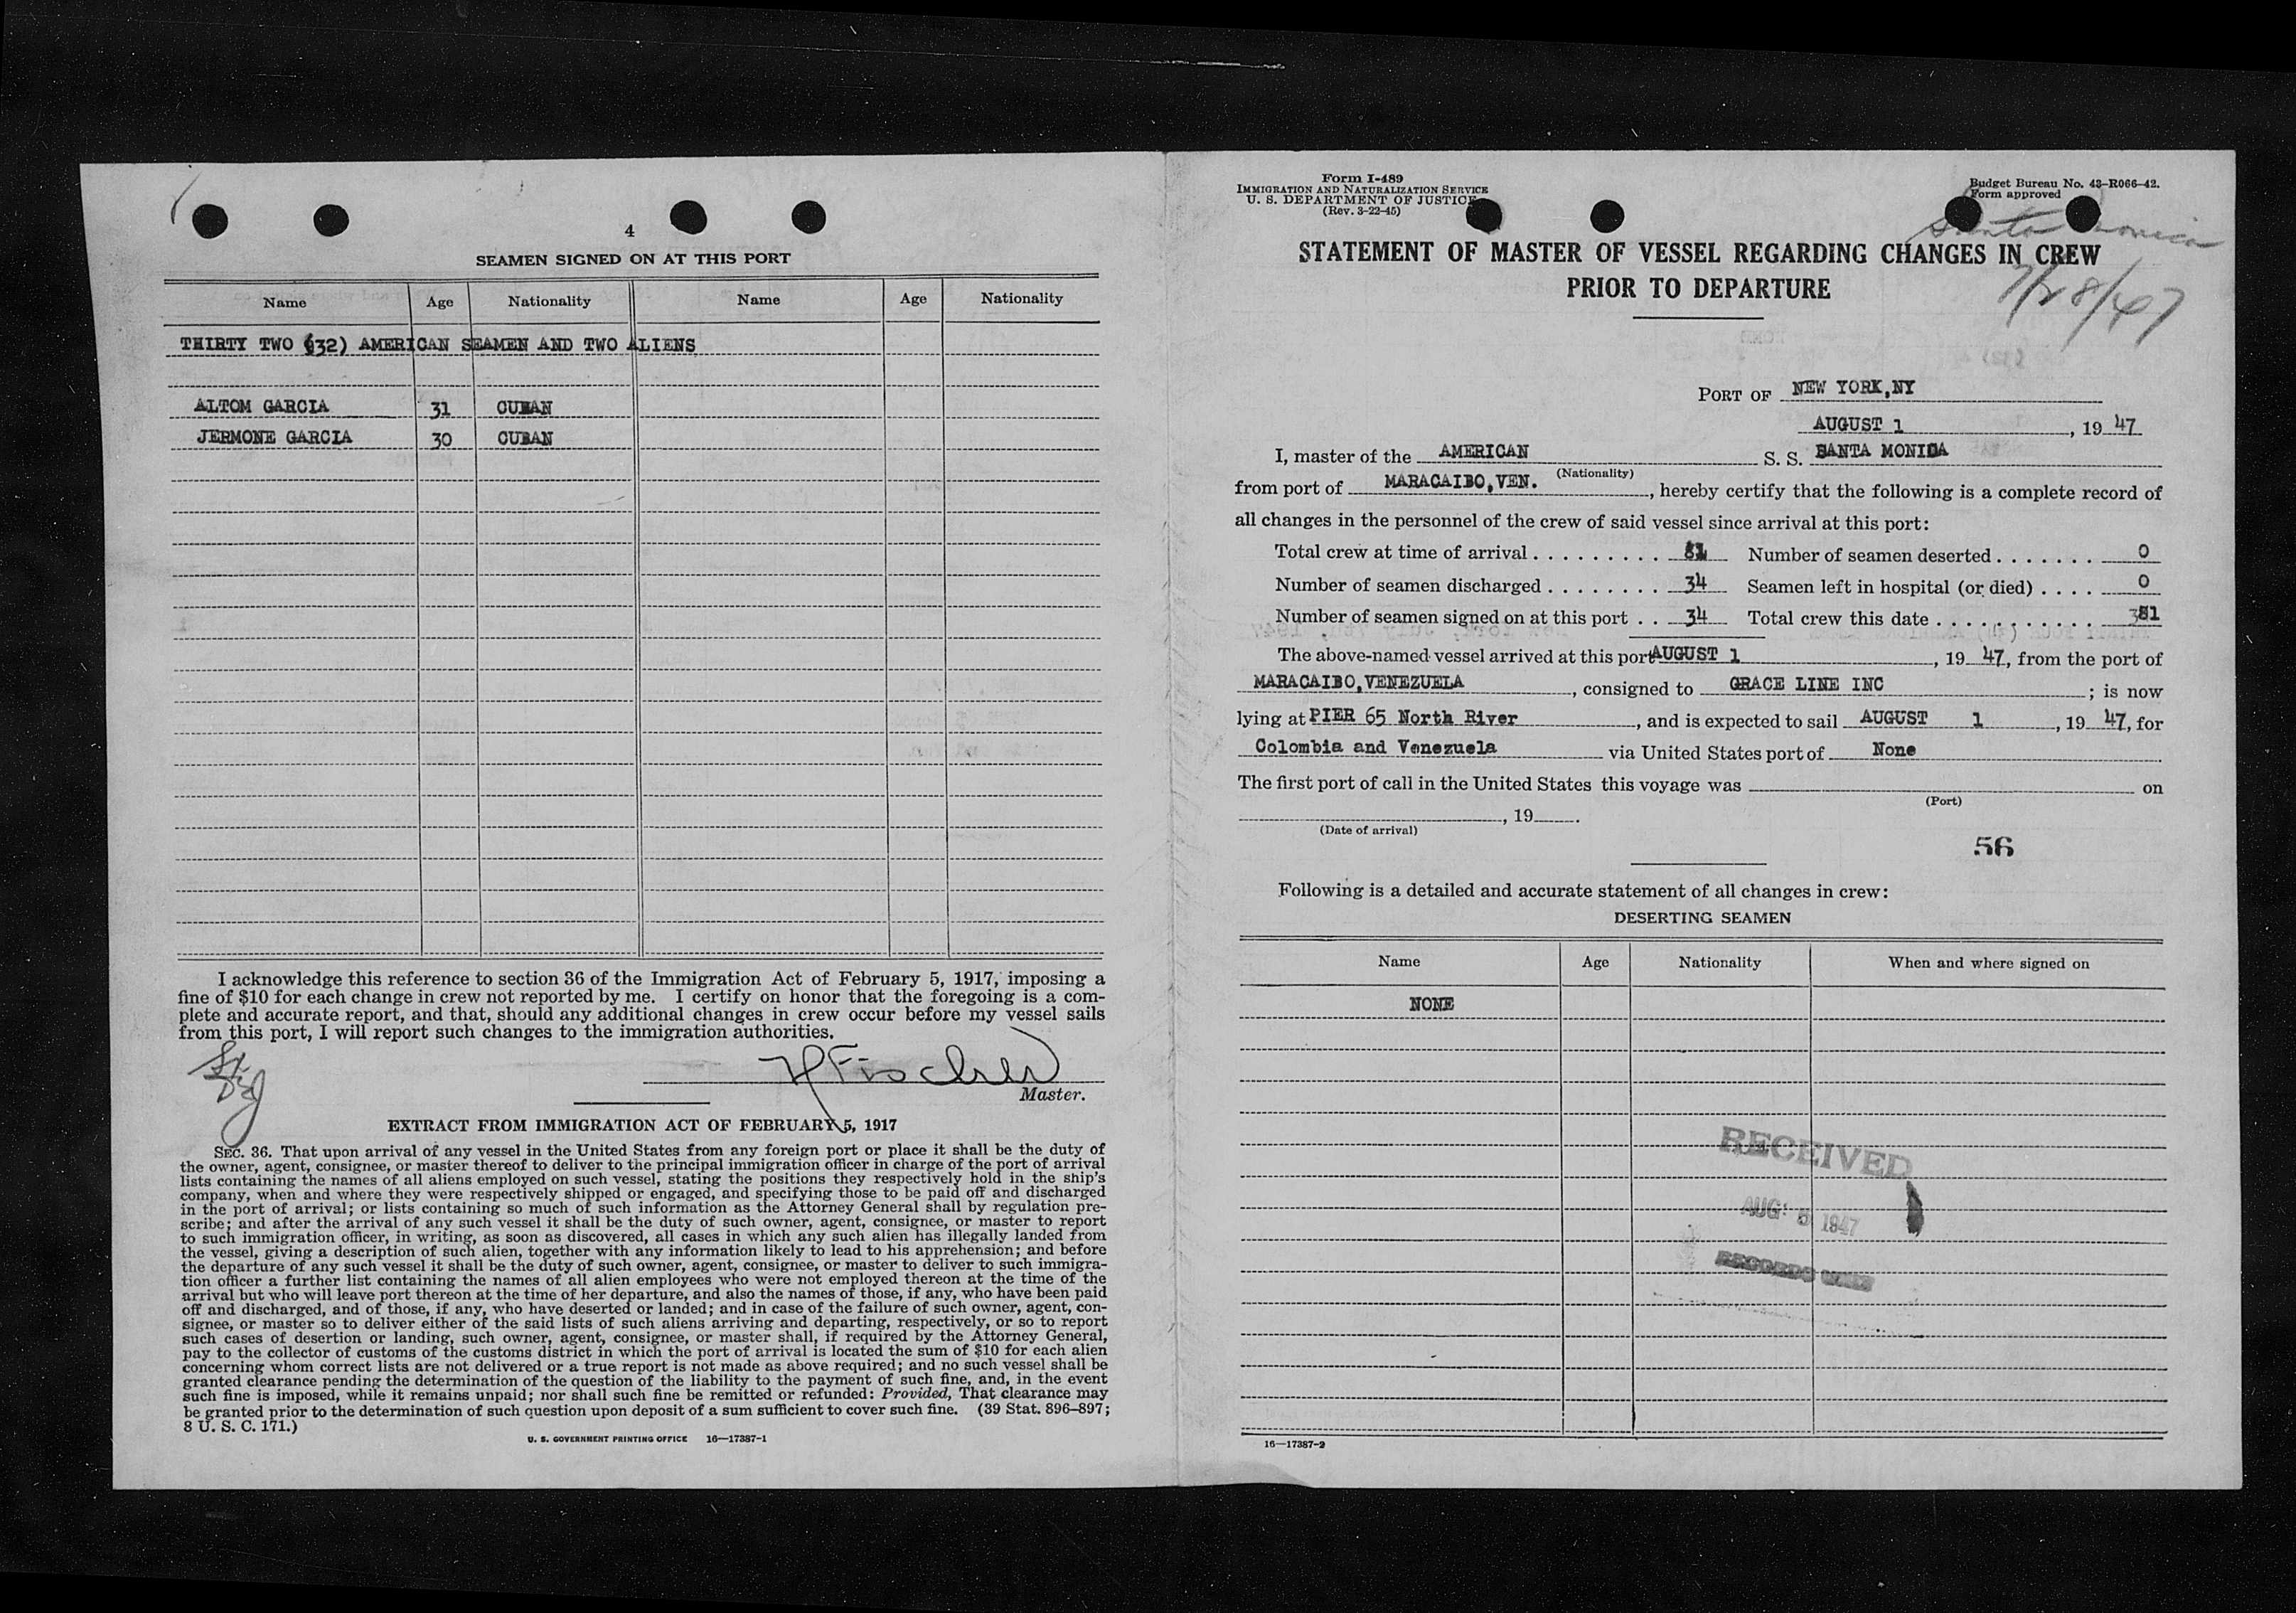 4
SEAMEN SIGNED ON AT THIS PORT
Name Age Nationality Name Age Nationality
THIRTY TWO (32) AMERICAN SEAMEN AND TWO ALIENS
ALTOM GARCIA 31 CUBAN
JERMONE GARCIA 30 CUBAN
I acknowledge this reference to section 36 of the Immigration Act of February 5, 1917, imposing a
fine of $10 for each change in crew not reported by me. I certify on honor that the foregoing is a com-
plete and accurate report, and that, should any additional changes in crew occur before my vessel sails
from this port, I will report such changes to the immigration authorities.
H Fischer
Master.
EXTRACT FROM IMMIGRATION ACT OF FEBRUARY 5, 1917
SEC. 36. That upon arrival of any vessel in the United States from any foreign port or place it shall be the duty of
the owner, agent, consignee, or master thereof to deliver to the principal immigration officer in charge of the port of arrival
lists containing the names of all aliens employed on such vessel, stating the positions they respectively hold in the ship's
company, when and where they were respectively shipped or engaged, and specifying those to be paid off and discharged
in the port of arrival; or lists containing so much of such information as the Attorney General shall by regulation pre-
scribe; and after the arrival of any such vessel it shall be the duty of such owner, agent, consignee, or master to report
to such immigration officer, in writing, as soon as discovered, all cases in which any such alien has illegally landed from
the vessel, giving a description of such alien, together with any information likely to lead to his apprehension; and before
the departure of any such vessel it shall be the duty of such owner, agent, consignee, or master to deliver to such immigra-
tion officer a further list containing the names of all alien employees who were not employed thereon at the time of the
arrival but who will leave port thereon at the time of her departure, and also the names of those, if any, who have been paid
off and discharged, and of those, if any, who have deserted or landed; and in case of the failure of such owner, agent, con-
signee, or master so to deliver either of the said lists of such aliens arriving and departing, respectively, or so to report
such cases of desertion or landing, such owner, agent, consignee, or master shall, if required by the Attorney General,
pay to the collector of customs of the customs district in which the port of arrival is located the sum of $10 for each alien
concerning whom correct lists are not delivered or a true report is not made as above required; and no such vessel shall be
granted clearance pending the determination of the question of the liability to the payment of such fine, and, in the event
such fine is imposed, while it remains unpaid; nor shall such fine be remitted or refunded: Provided, That clearance may
be granted prior to the determination of such question upon deposit of a sum sufficient to cover such fine. (39 Stat. 896–897;
8 U. S. C. 171.)
U. S. GOVERNMENT PRINTING OFFICE 16—17387-1
Form I-489
IMMIGRATION AND NATURALIZATION SERVICE
U. S. DEPARTMENT OF JUSTICE
(Rev. 3-22-45)
Budget Bureau No. 43–R066–42.
Form approved
Santa Monica
7/28/47
STATEMENT OF MASTER OF VESSEL REGARDING CHANGES IN CREW
PRIOR TO DEPARTURE
PORT OF NEW YORK,NY
AUGUST 1, 19 47
I, master of the AMERICAN S. S. SANTA MONICA
(Nationality)
from port of MARACAIBO,VEN., hereby certify that the following is a complete record of
all changes in the personnel of the crew of said vessel since arrival at this port:
Total crew at time of arrival . . . . . . . . . . 81 Number of seamen deserted . . . . . . . 0
Number of seamen discharged . . . . . . . . 34 Seamen left in hospital (or died) . . . . 0
Number of seamen signed on at this port . . 34 Total crew this date . . . . . . . . . . . 81
The above-named vessel arrived at this port AUGUST 1, 19 47, from the port of
MARACAIBO,VENEZUELA, consigned to GRACE LINE INC; is now
lying at PIER 65 North River, and is expected to sail AUGUST 1, 19 47, for
Colombia and Venezuela via United States port of None.
The first port of call in the United States this voyage was on
(Port)
, 19 .
(Date of arrival)
56
Following is a detailed and accurate statement of all changes in crew:
DESERTING SEAMEN
Name Age Nationality When and where signed on
NONE
RECEIVED
AUG 5 1947
RECORDS UNIT
16—17387-2